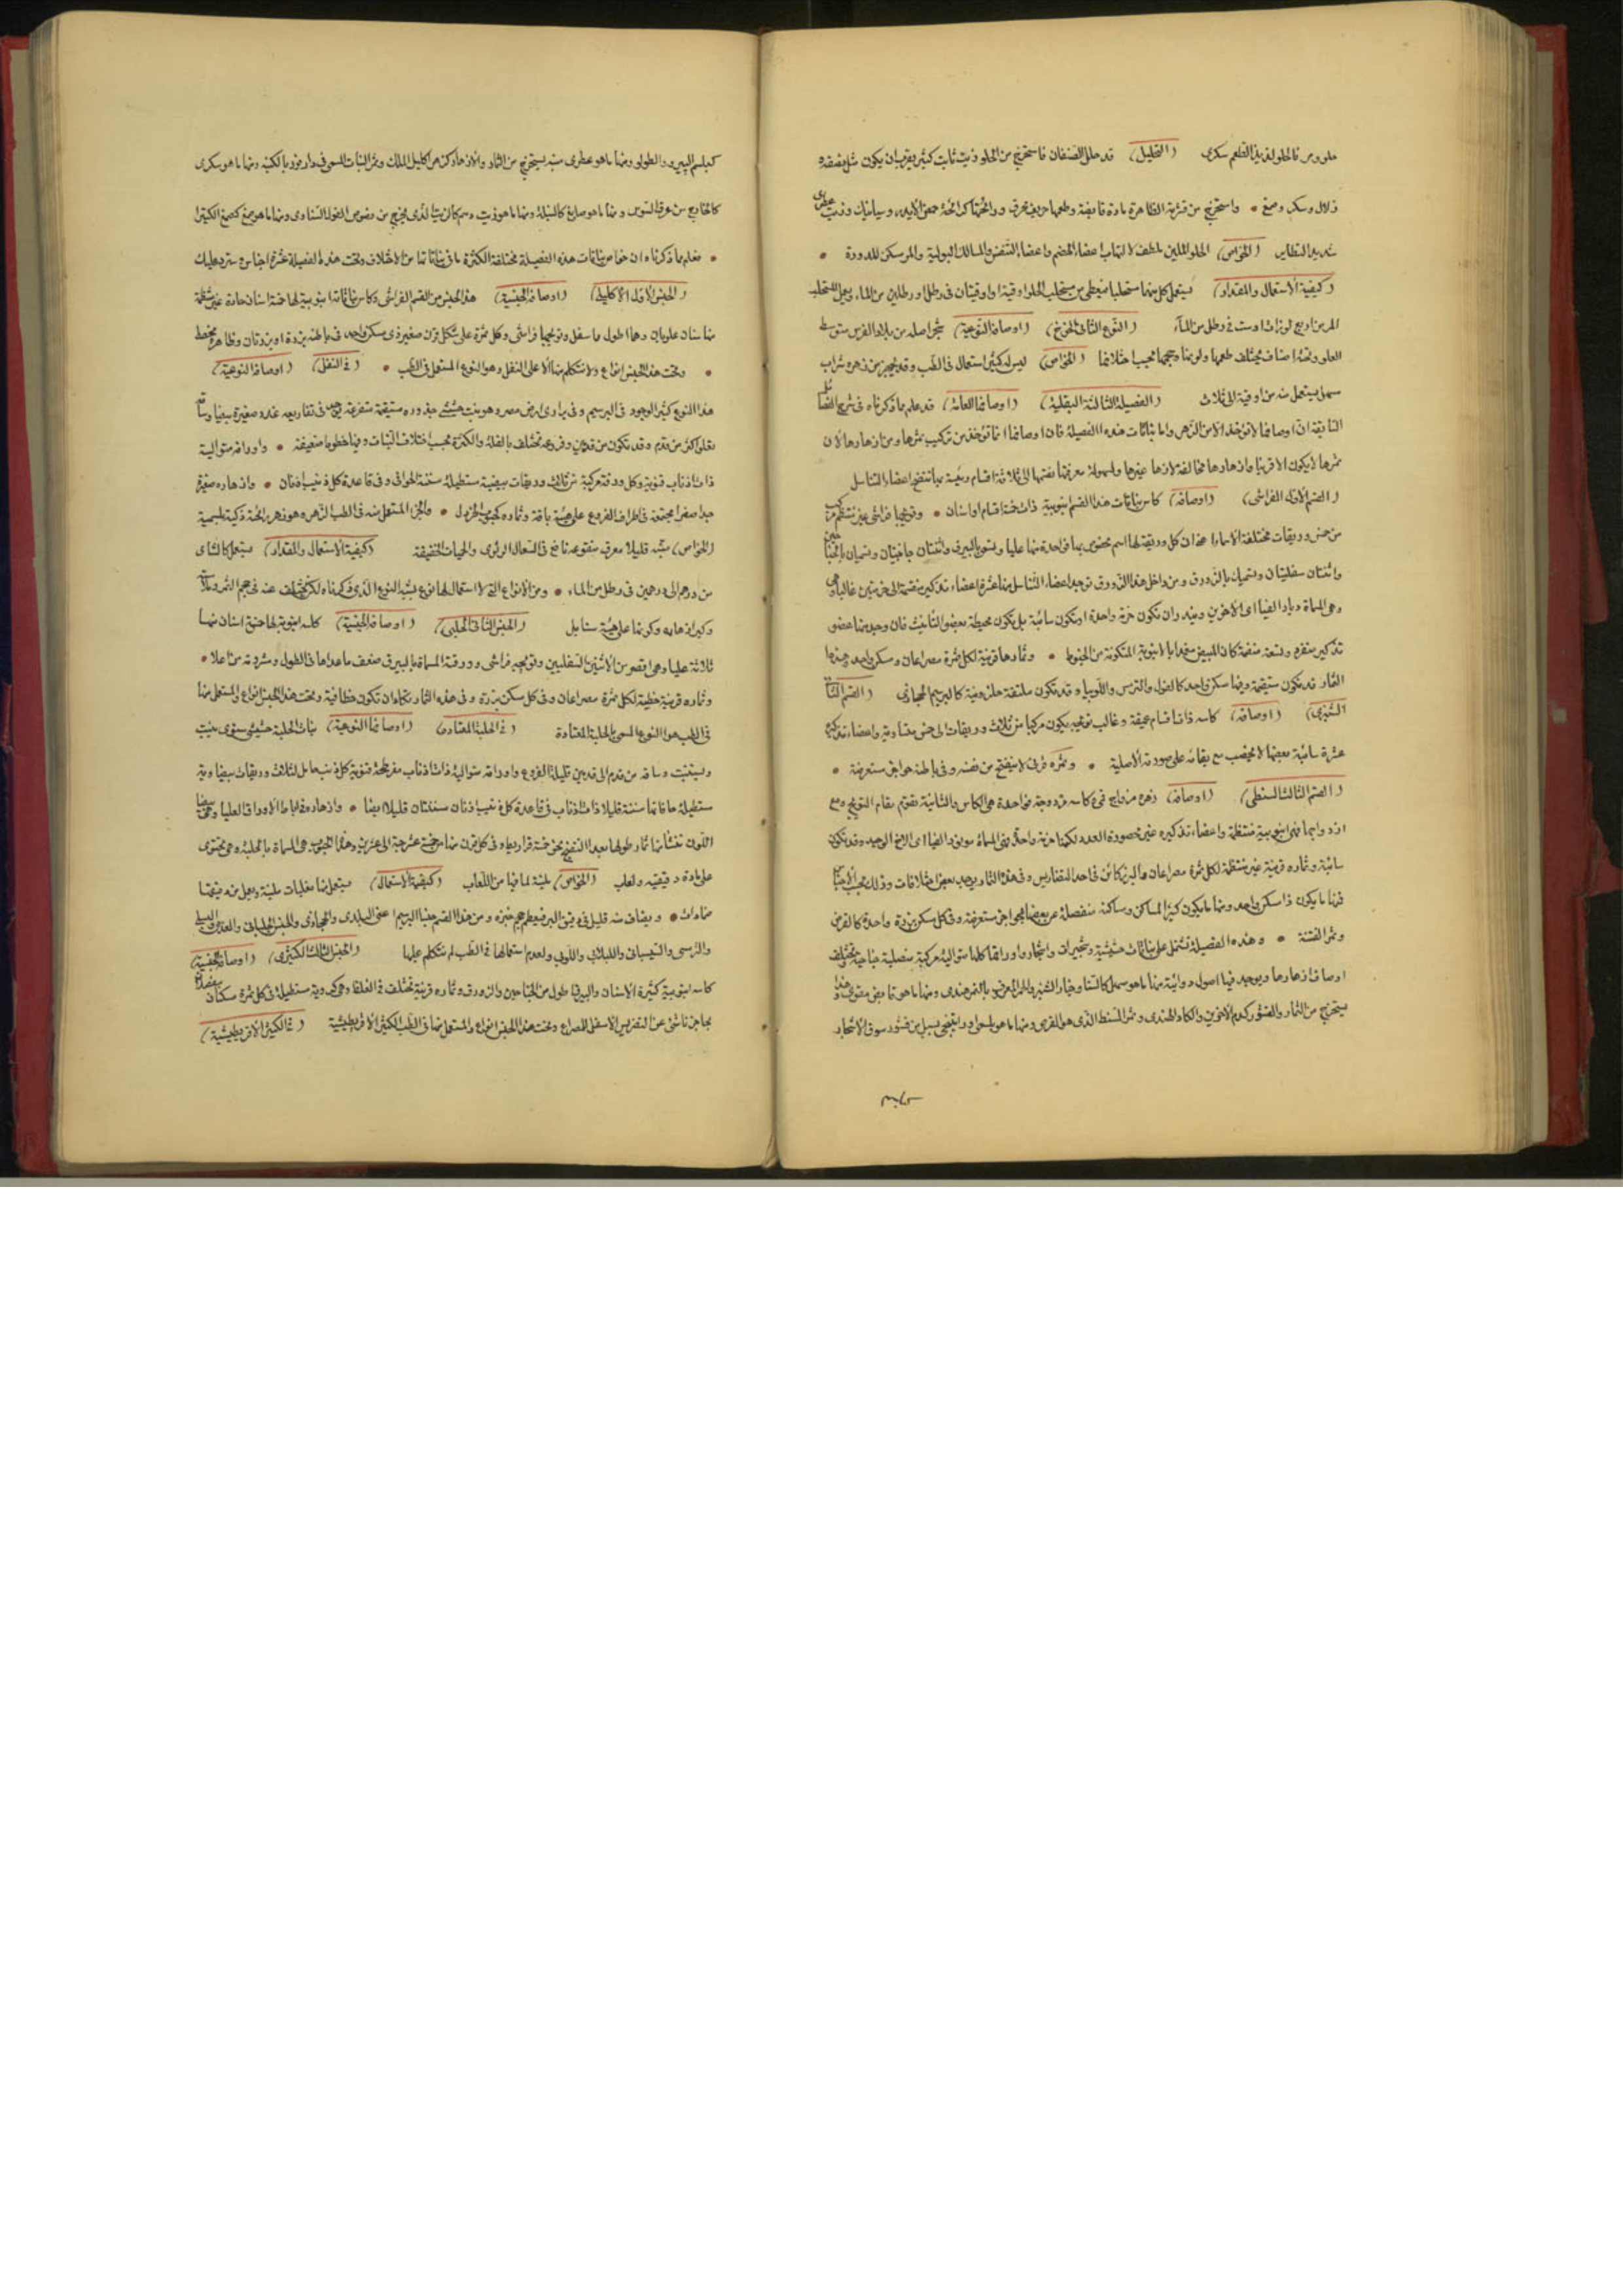 حلو ومر فالحلو لذيذ الطعم سكرى (التحليل) قد حلل الصنفان فاستخرج من الحلو زيت ثابت كثير يقرب ان يكون مثل نصفه
زلال وسكر وصمغ • واستخرج من قشرته الظاهرة مادة قابضة وطعمها حريف محرق ورائحتها كرائحة حمض الايدروسيانيك وزيت عطرى
شديد التطاير (الخواص) الحلو الملين ملطف لالتهاب اعضاء الهضم واعضاء التنفس والمسالك البولية والمر مسكن للدودة •
(كيفية الاستعمال والمقدار) يستعمل كل منهما مستحلبا فيعطى من مستحلب الحلو اوقية او اوقيتان فى رطل او رطلين من الماء ويعمل المستحلب
المر من اربع لوزات او ست فى رطل من الماء (النوع الثانى الخوخ) (اوصافه النوعية) شجر اصله من بلاد الفرس متوسط
العلو وتحته اصناف يختلف طعمها ولونها وحجمها بحسب اختلافها (الخواص) ليس له كبير استعمال فى الطب وقد يجهز من زهره شراب
مسهل يستعمل منه من اوقية الى ثلاث (الفصيلة الثالثة البقلية) (اوصافها العامة) قد علم مما ذكرناه فى شرح الفصائل
السابقة ان اوصافها لا تؤخذ الا من الزهر واما نباتات هذه الفصيلة فان اوصافها انما تؤخذ من تركيب ثمرها ومن ازهارها لان
ثمرها لا يكون الا قرنيا وازهارها مخالفة لازهار غيرها ولسهولة معرفتها نقسمها الى ثلاثة اقسام رئيسة مما يتضح اعضاء التناسل
(القسم الاول الفراشى) (اوصافه) كاس نباتات هذا القسم انبوبية ذات خمسة اقسام او اسنان • وتويجها فراشى غير منتظم مركب
من خمس وريقات مختلفة الاسماء اعنى ان كل وريقة لها اسم مخصوص بها فواحدة منها عليا وتسمى بالبيرق واثنتان جانبيتان وتسميان بالجناحين
واثنتان سفليتان وتسميان بالزورق ومن داخل هذا الزورق توجد اعضاء التناسل منها عشرة اعضاء تذكير منضمة الى حزمتين غالبا
وهى المسماة ديادلفيا اى الاخوين ويندر ان تكون حزمة واحدة او تكون سائبة بل تكون محيطة بعضو التأنيث فان وجد منها عضو
تذكير منفرد وتسعة منضمة كان المبيض مغمدا بالانبوبة المتكونة من الخيوط • وثمارها قرنية لكل ثمرة مصراعان ومسكن واحد وهذه
الثمار قد تكون مستقيمة وفيها مسكن واحد كالفول والترمس واللوبيا وقد تكون ملتفة حلزونية كالبرسيم الحجازى (القسم الثانى
الشنبرى) (اوصافه) كاسه ذات اقسام عميقة وغالب تويجه يكون مركبا من ثلاث وريقات الى خمس متساوية واعضاء تذكيره
عشرة سائبة بعضها لا يخصب مع بقائه على صورته الاصلية • وثمره قرنى لا ينفتح من نفسه وفى باطنه حواجز مستعرضة •
(القسم الثالث السنطى) (اوصافه) زهره مزواج فى كاسه مزدوجة فواحدة هى الكاس والثانية تقوم مقام التويج ومع
ازدواجها فهى انبوبية منتظمة واعضاء تذكيره غير محصورة العدد لكنها حزمة واحدة وهى المسماة مونودلفيا اى الاخ الوحيد وقد تكون
سائبة وثماره قرنية غير منتظمة لكل ثمرة مصراعان والبزر كائن فى احد التضاريس وفى هذه الثمار يوجد بعض اختلافات وذلك بحسب الاجناس
فمنها ما يكون ذا مسكن واحد ومنها ما يكون كثير المساكن ومساكنه منفصلة عن بعضها بحواجز مستعرضة وفى كل مسكن بزرة واحدة كالقرض
وثمر الفتنة • وهذه الفصيلة تشتمل على نباتات حشيشية وشجيرات واشجار واوراقها كلها متوالية مركبة مفصلية جناحية تختلف
اوصاف ازهارها ويوجد فيها اصول دوائية منها ما هو مسهل كالسنا وخيار الشنبر والحمر المعروف بالتمر هندى ومنها ما هو قابض مقوى وهذا
يستخرج من الثمار والقشور كدم الاخوين والكاد الهندى وثمر السنط الذى هو القرض ومنها ما هو بلسمى راتينجى يسيل من قشور سوق الاشجار
كبلسم
كبلسم البيرو والطولو ومنها ما هو عطرى منبه يستخرج من الثمار والازهار كزهر اكليل الملك وثمر النبات المسوف دارمور بالكبة ومنها ما هو سكرى
كالخارج من عرق السوس ومنها ما هو صابغ كالنيلة ومنها ما هو زيت دسم كالزيت الذى يخرج من فصوص الفول السناوى ومنها ما هو صمغ كصمغ الكثيرا
• فعلم مما ذكرناه ان خواص نباتات هذه الفصيلة مختلفة لكثرة ما فى نباتاتها من الاختلاف وتحت هذه الفصيلة عشرة اجناس سترد عليك
(الجنس الاول الاكليلى) (اوصافه الجنسية) هذا الجنس من القسم الفراشى وكاس نباتاته انبوبية لها خمسة اسنان حادة غير منتظمة
منها سنان علويان وهما اطول مما سفل وتويجها فراشى وكل ثمرة على شكل قرن صغير ذى مسكن واحد فى باطنه بزرة او بزرتان وظاهره مخطط
• وتحت هذا الجنس انواع ولا نتكلم منها الا على النفل وهو النوع المستعمل فى الطب • (فى النفل) (اوصافه النوعية)
هذا النوع كثير الوجود فى البرسيم وفى برارى ارض مصر وهو نبت حشيشى جذوره مستقيمة متفرعة يوجد فى تفاريعه غدد صغيرة بيضا وساقه
تعلو اكثر من قدم وقد تكون من قدمين وفروعه تختلف بالقلة والكثرة بحسب اختلاف النبات وفيها خطوط ضعيفة • واوراقه متوالية
ذات اذناب قنوية وكل ورقة مركبة من ثلاث وريقات بيضية مستطيلة مسننة الحوافى وفى قاعدة كل ذنيب اذنان • وازهاره صغيرة
جدا صفر مجتمعة فى اطراف الفروع على هيئة باقة وثماره كحبوب الخردل • والجزء المستعمل منه فى الطب الزهر وهو زهر رائحته ذكية بلسمية
(الخواص) منبه قليلا معرق منقوعه نافع فى السعال الرئوى والحميات الخفيفة (كيفية الاستعمال والمقدار) يستعمل كالشاى
من درهم الى درهمين فى رطل من الماء • ومن الانواع التى لا استعمال لها نوع يشبه النوع الذى ذكرناه لكن يختلف عنه فى حجم الثمر وملاسته
وكبر ازهاره وكونها على هيئة سنابل (الجنس الثانى الحلبى) (اوصافه الجنسية) كاسه انبوبية لها خمسة اسنان منها
ثلاثة عليا وهى اقصر من الاثنين السفليين وتويجه فراشى وورقته المسماة بالبيرق ضعف ما عداها فى الطول ومشرومة من اعلا •
وثماره قرنية خطية لكل ثمرة مصراعان وفى كل مسكن بزرة وفى هذه الثمار تكاد ان تكون خطافية وتحت هذا الجنس انواع والمستعمل منها
فى الطب هو النوع المسمى بالحلبة المعتادة (فى الحلبة المعتادة) (اوصافها النوعية) نبات الحلبة حشيشى سنوى ينبت
ويستنبت وساقه من قدم الى قدمين قليلة الفروع واوراقه متوالية ذات اذناب مفرطحة قنوية كل ذنيب حامل لثلاث وريقات بيضاوية
مستطيلة حافاتها مسننة قليلا ذات اذناب فى قاعدة كل ذنيب اذنان مسننتان قليلا ايضا • وازهاره فى اباط الاوراق العليا وهى بيضا
اللون تنشأ منها ثمار طولها بعد النضج نحو خمسة قراريط وفى كل قرن منها من خمسة عشر حبة الى عشرين وهذه الحبوب هى المسماة بالحلبة وهى تحتوى
على مادة دقيقية ولعاب (الخواص) ملينة لما فيها من اللعاب (كيفية الاستعمال) يستعمل منها مغليات ملينة ويعمل من دقيقها
ضمادات • ويضاف منه قليل فى دقيق البر فيعظم حجم خبزه ومن هذا القسم جنسا البرسيم اعنى البلدى والحجازى والجنس الجلبانى والعدس والبسيلى
والترمسى والتيسبانى واللبلابى واللوبى ولعدم استعمالها فى الطب لم نتكلم عليها (الجنس الثالث الكثيرى) (اوصافه الجنسية)
كاسه انبوبية كثيرة الاسنان والبيرق اطول من الجناحين والزورق وثماره قرنية تختلف فى الغلظ وهى كروية مستطيلة فى كل ثمرة مسكنان منفصلان
بحاجز ناشئ عن التضريس الاسفل للمصراع وتحت هذا الجنس انواع والمستعمل منها فى الطب الكثيرا الاقريطيشية (فى الكثيرا الاقريطيشية)